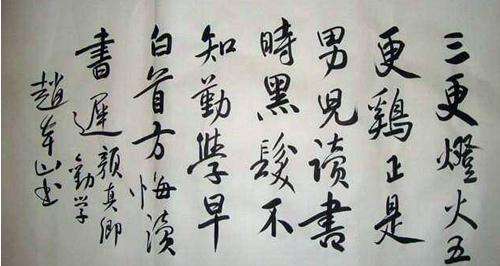 三更燈火五
更鷄正是
男兒讀書
時黑髮不
知勤學早
白首方悔讀
書遲
顏真卿
勸学
趙本山书